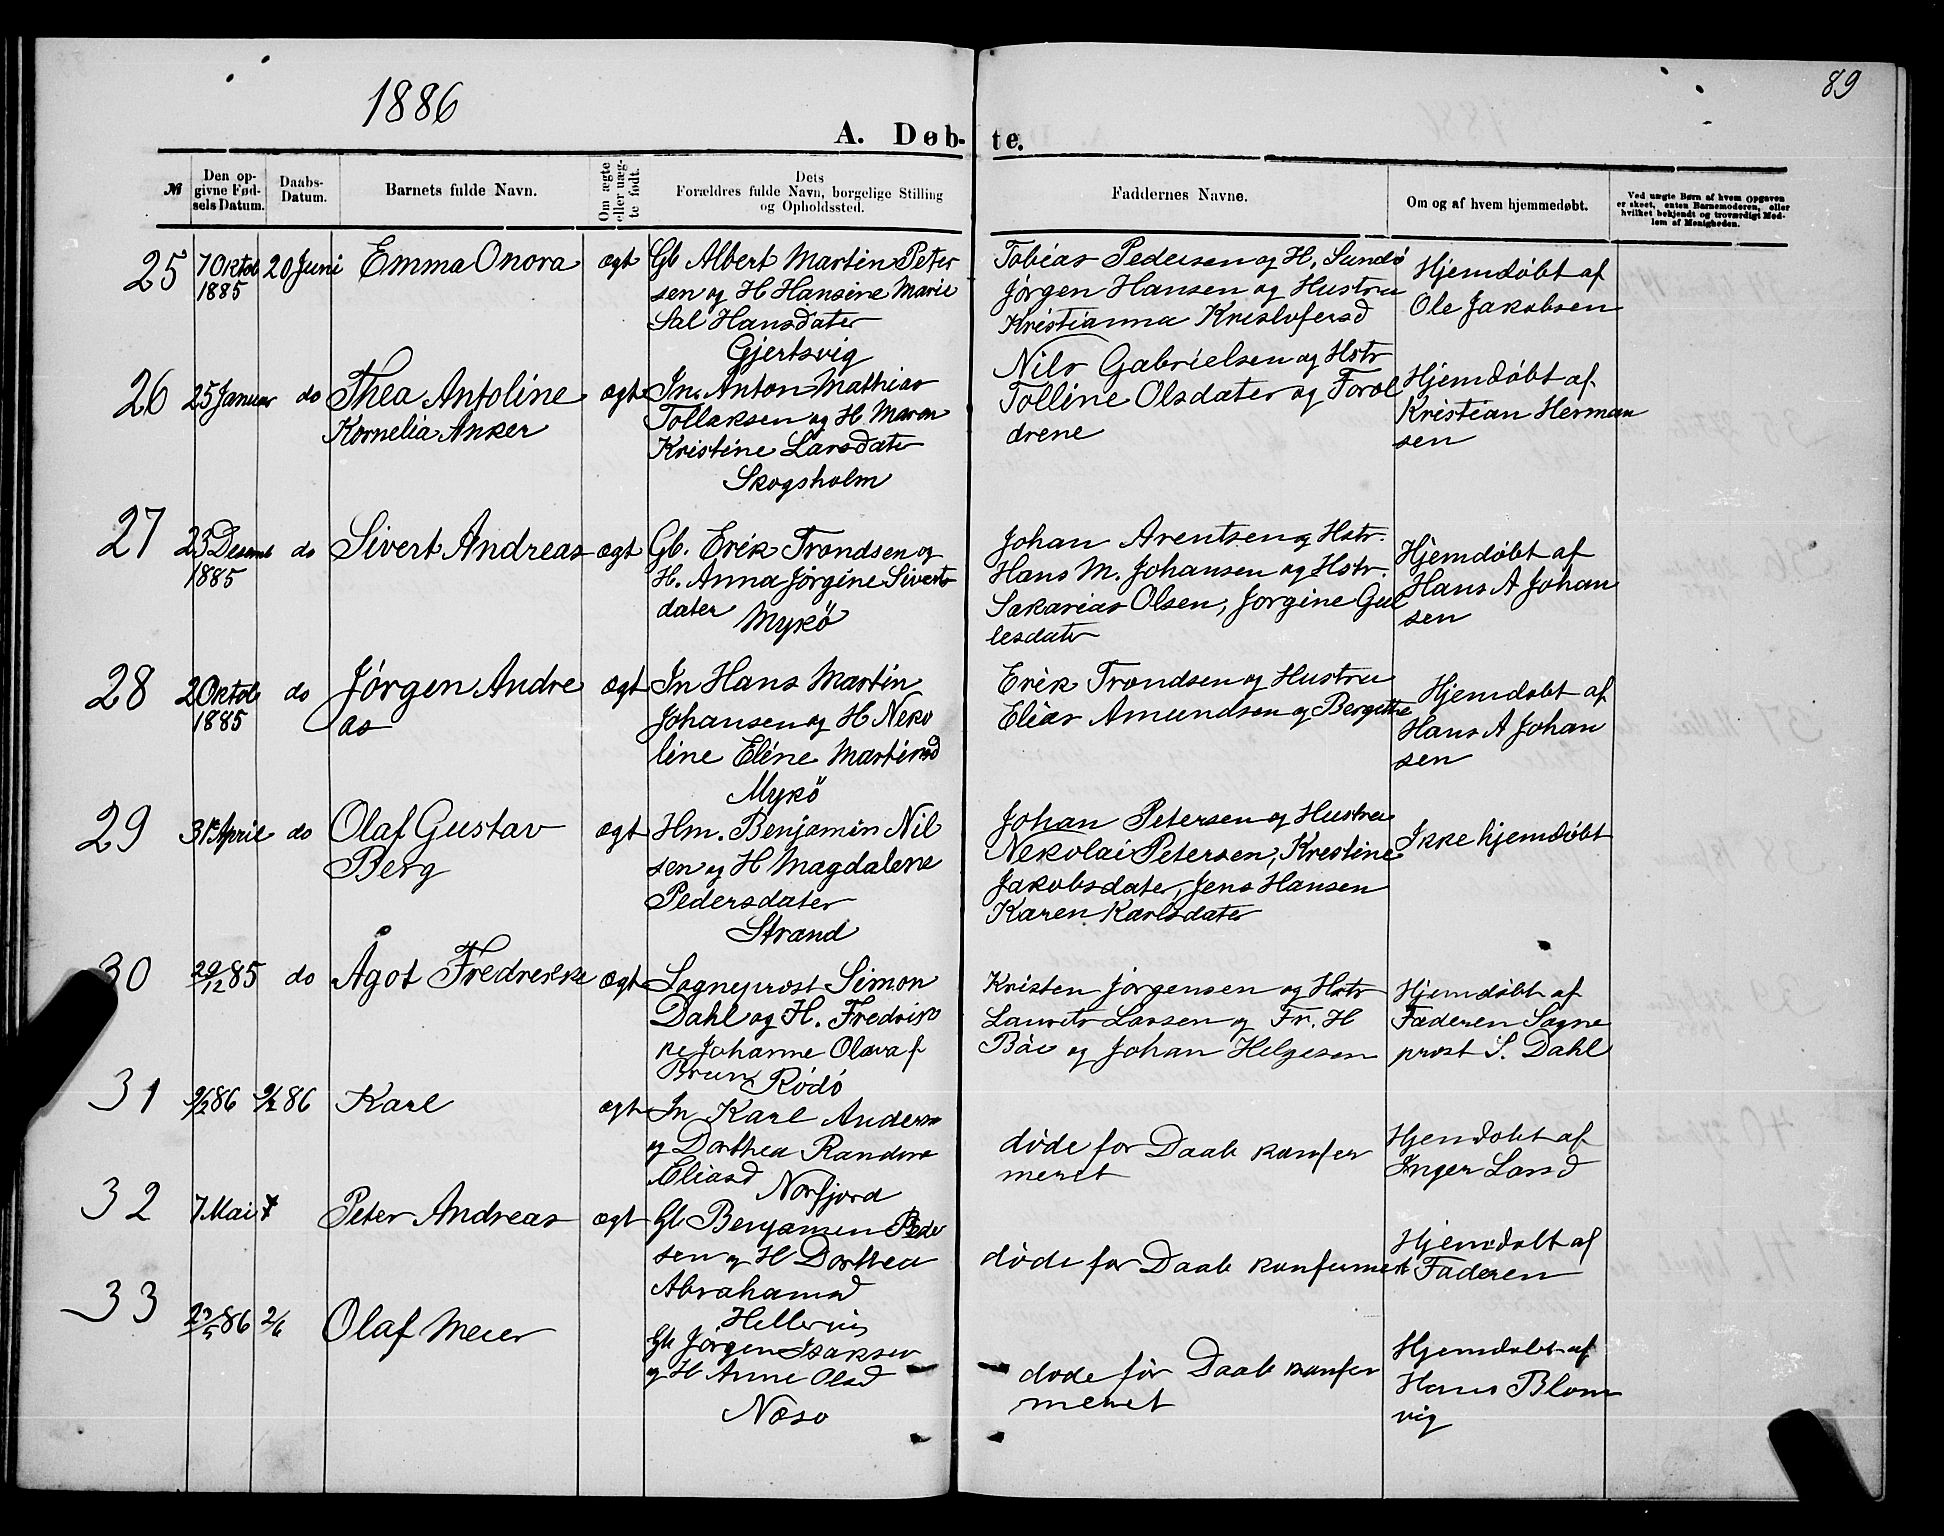 1886
89
A. Døb-te.
№
Den op-
givne Fød-
sels Datum.
Daabs-
Datum.
Barnets fulde Navn.
Om ægte
eller uæg-
te født.
Dets
Forældres fulde Navn, borgelige Stilling
og Opholdssted.
Faddernes Navne.
Om og af hvem hjemmedøbt.
Ved uægte Børn af hvem Opgaven
er skeet, enten Barnemoderen, eller
hvilket bekjendt og troværdigt Med-
lem af Menigheden.
25
7 Oktob
1885
20 Juni
Emma Onora
ægt
Gb Albert Martin Peter
sen og H Hansine Marie
Sal Hansdater
Gjertsvig
Tobias Pedersen og H, Sundø
Jørgen Hansen og Hustru
Kristianna Kristofersd
Hjemdøbt af
Ole Jakobsen
26
25 Januar
do
Thea Antoline
Kornelia Anker
ægt
In. Anton Mathias
Tollaksen og H. Maren
Kristine Larsdater
Skogsholm
Nils Gabrielsen og Hstr
Tolline Olsdater og Foræl
drene
Hjemdøbt af
Kristian Herman
sen
27
23 Desemb
1885
do
Sivert Andreas
ægt
Gb. Erik Trondsen og
H. Anna Jørgine Siverts
dater
Mykö
Johan Arentsen og Hstr.
Hans M. Johansen og Hstr.
Sakarias Olsen, Jørgine Gul
lesdater
Hjemdøbt af
Hans A Johan
sen
28
2 Oktob
1885
do
Jørgen Andre
as
ægt
In Hans Martin
Johansen og H Neko
line Eline Martinsd
Mykö
Erik Trondsen og Hustru
Elias Amundsen og Bergitte
Hjemdøbt af
Hans A Johan
sen
29
April
do
Olaf Gustav
Berg
ægt
Hm. Benjamin Nil
sen og H Magdalena
Pedersdater
Strand
Johan Petersen og Hustru
Nekolai Petersen, Krestine
Jakobsdater, Jens Hansen
Karen Karlsdater
Ikke hjemdøbt
30
29/12 85
do
Ågot Fredrekke
ægt
Sogneprost Simon
Dahl og H. Fredrik
ke Johanne Olava f
Brun Rødø
Kristen Jørgensen og Hstr
Laurits Larsen og Fr. H
Böe og Johan Helgesen
Hjemdøbt af
Faderen Sogne
prost S. Dahl
31
9/2 86
9/2 86
Karl
ægt
In Karl Anders
og Dorthea Randine
Eliasd
Norfjord
døde før Daab konfer
meret
Hjemdøbt af
Inger Larsd
32
7 Mai
Peter Andreas
ægt
Gb Benjamen Peder
sen og H Dorthea
Abrahamsd
Hellervig
døde før Daab konfermert
Hjemdøbt af
Faderen
33
23/5 86
2/6
Olaf Meier
Gb Jørgen Isaksen
og H Anne Olsd
Næsø
døde før Daab konfer
meret
Hjemdøbt af
Hans Blom
vig